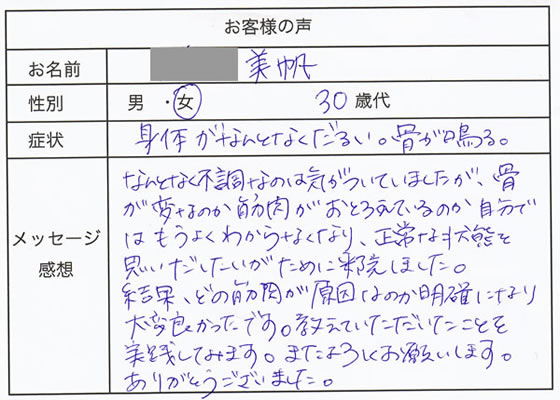 お客様の声
お名前 美帆
性別 男・女 30歳代
症状 身体がなんとなくだるい。骨が鳴る。
メッセージ
感想
なんとなく不調なのは気がついていましたが、骨
が変なのか筋肉がおとろえているのか自分で
はもうよくわからなくなり、正常な状態を
思いだしたいがために来院しました。
結果、どの筋肉が原因なのか明確になり
大変良かったです。教えていただいたことを
実践してみます。またよろしくお願いします。
ありがとうございました。